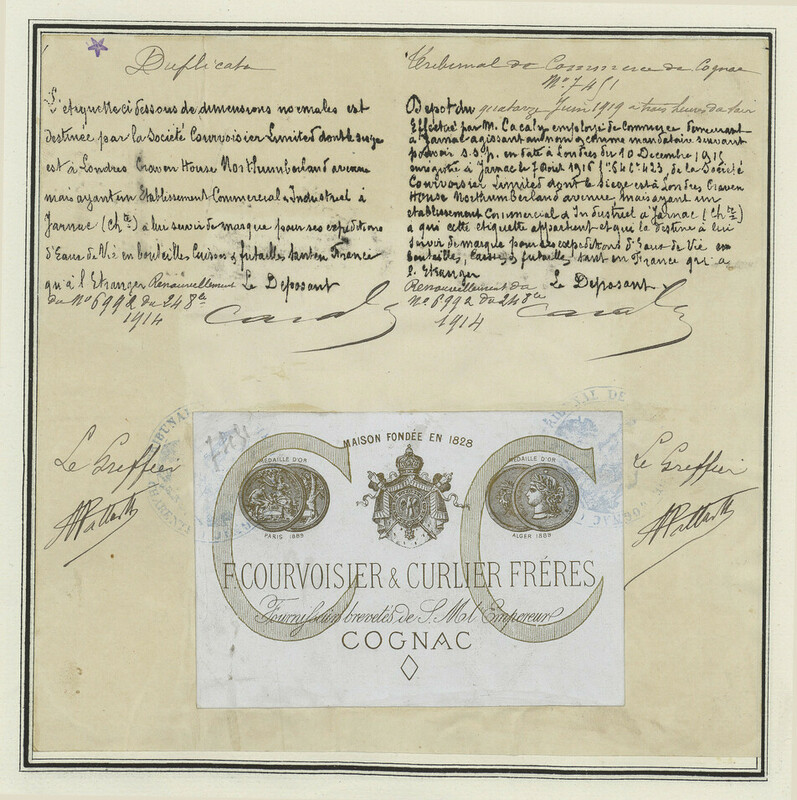 Duplicata
L'étiquette ci dessous de dimensions normales est
destinée par la Société Courvoisier Limited dont le siège
est à Londres Craven House Northumberland avenue
mais ayant un Etablissement Commercial & Industriel à
Jarnac (Chte) à lui servir de marque pour ses expéditions
d'Eaux de Vie en bouteilles Caisses & futailles tant en France
qu'à l'Etranger Renouvellement
du No 6992 du 24 8bre
1914
Le Déposant
Cacaly
Tribunal de Commerce de Cognac
No 7451
Dépôt du quatorze Juin 1919 à trois heures du soir
Effectué par M. Cacaly employé de Commerce demeurant
à Jarnac agissant au nom & comme mandataire suivant
pouvoir s.s.p. en date à Londres du 10 Décembre 1915
enrégistré à Jarnac le 7 Août 1916 fo 54 C. 423, de la Société
Courvoisier Limited dont le Siège est à Londres Craven
House Northumberland avenue, mais ayant un
établissement Commercial & Industriel à Jarnac (Chte)
à qui cette étiquette appartient et qui la destine à lui
servir de marque pour les expéditions d'Eaux de Vie en
bouteilles, Caisses, & futailles, tant en France qu'à
l'Etranger
Renouvellement du
No 6992 du 24 8bre
1914
Le Déposant
Cacaly
Le Greffier
Le Greffier
MAISON FONDÉE EN 1828
MÉDAILLE D'OR
PARIS 1889
MÉDAILLE D'OR
ALGER 1889
F. COURVOISIER & CURLIER FRÉRES
Fournisseurs brevetés de S. M. l'Empereur
COGNAC